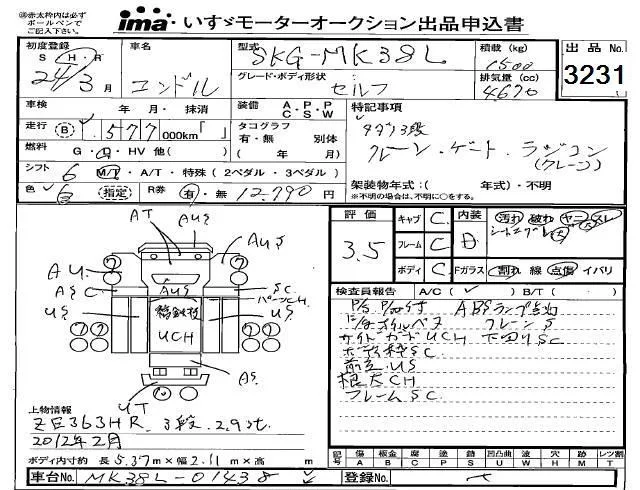 ※赤太枠内は必ず
ボールペンで
ご記入下さい。
ima・いすゞモーターオークション出品申込書
初度登録 S・H・R 24/3月
車名 コンドル
型式 SKG-MK38L
積載(kg) 1500
出品No. 3231
グレード・ボディ形状 セルフ
排気量(cc) 4670
車検 年・月・抹消
装備 A.P.P C S W
特記事項
走行 B 577 000km「 」
タコグラフ 有・無 別体 ( 年 月)
タダノ3段
クレーン・ゲート・ラジコン
(クレーン)
燃料 G・D・HV 他( )
シフト 6 MT・A/T・特殊(2ペダル・3ペダル)
架装物年式:( 年式)・不明
※架装物の場合は、不明に○をする。
色 白 指定 R券 有・無 12,790円
評価 3.5
キャブ C
フレーム C
ボディ C
内装 D
汚れ 破れ ヤニ スレ
Fガラス 割れ 線 点傷 イバリ
検査員報告 A/C( ) B/T( )
AT AUS
AU AUS
ASC SC
US US
縞鉄板
UCH
AS
UT
P/S P/W付 ABSランプ点灯
クレーンS
サイドガードUCH 下回りSC
SC
US
根太CH
フレームSC
上物情報
ZE363HR 3段 2.9st.
2012年2月
ボディ内寸約 長5.37m×幅2.11m×高 m
記号 傷A 板金B 腐C 穴P 塗S 錆S 凹凸曲U 波W 穴H 跡M レツ割T
車台No. MK38L-01438
登録No.